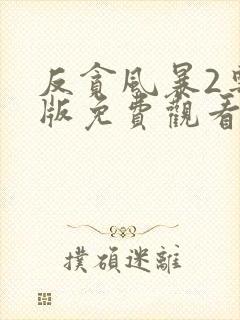 反貪風暴2
版免費觀看
撲碩迷離